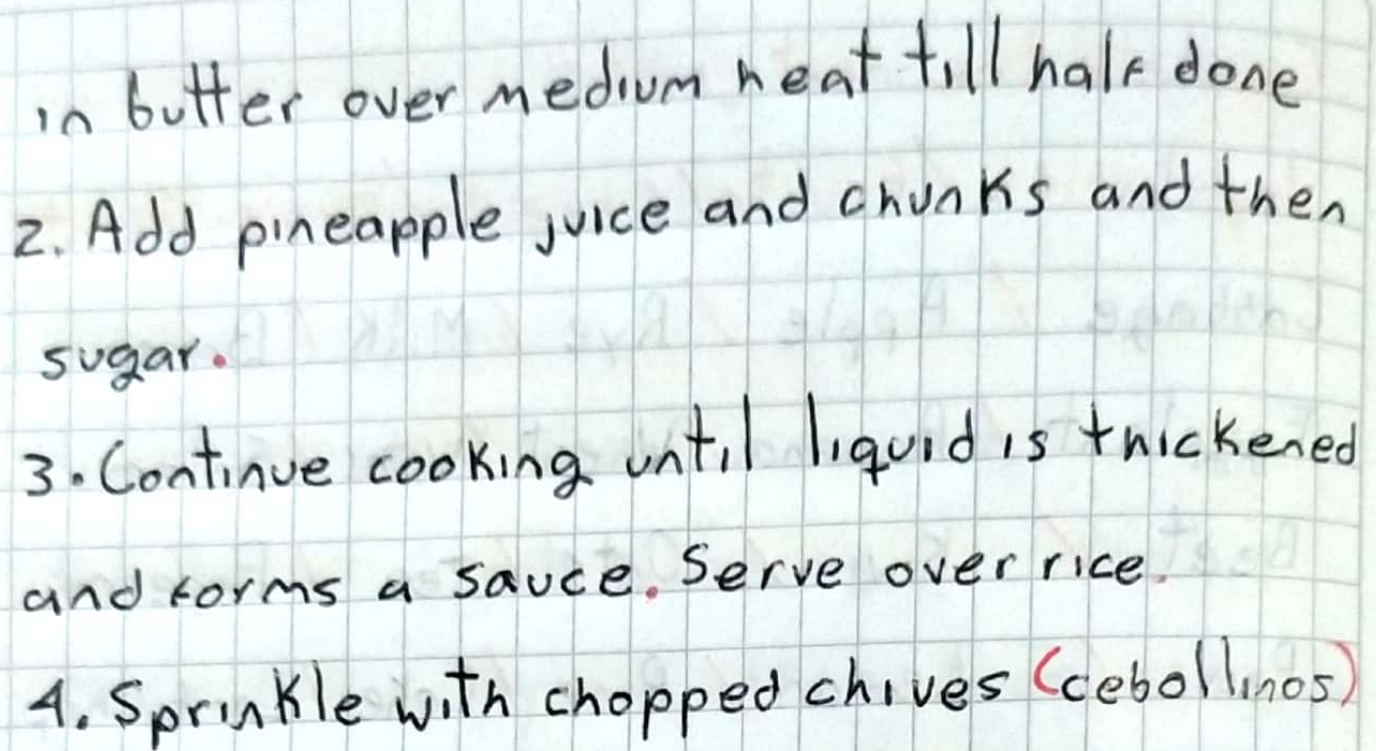 in butter over medium heat till half done
2. Add pineapple juice and chunks and then
sugar.
3. Continue cooking until liquid is thickened
and forms a sauce. Serve over rice.
4. Sprinkle with chopped chives (cebollinos)